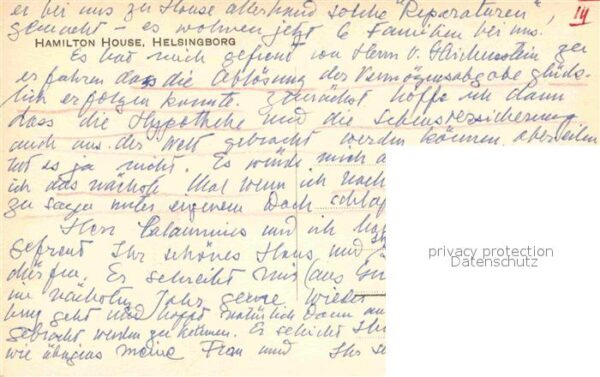 er bei uns zu Hause allerhand solche "Reparaturen", III
gemacht – es wohnen jetzt 6 Familien bei uns.
HAMILTON HOUSE, HELSINGBORG
Es hat mich gefreut von Herrn v. zu
erfahren dass die Ablösung der Vermögensabgabe glück-
lich erfolgen konnte. Zunächst hoffe ich dann
dass die Hypotheke und die Lebensversicherung
auch aus der Welt gebracht werden können, aber eilen
tut es ja nicht. Es würde mich
ich das nächste Mal wenn ich nach
zu sagen unter eigenem Dach
Herr und ich
gefreut Ihr schönes Haus und
dürfen. Er schreibt mir (aus
im nächsten Jahr gerne wieder
geht und hofft natürlich dann
gebracht werden zu können. Er schickt
wie übrigens meine Frau und Ihr
privacy protection
Datenschutz